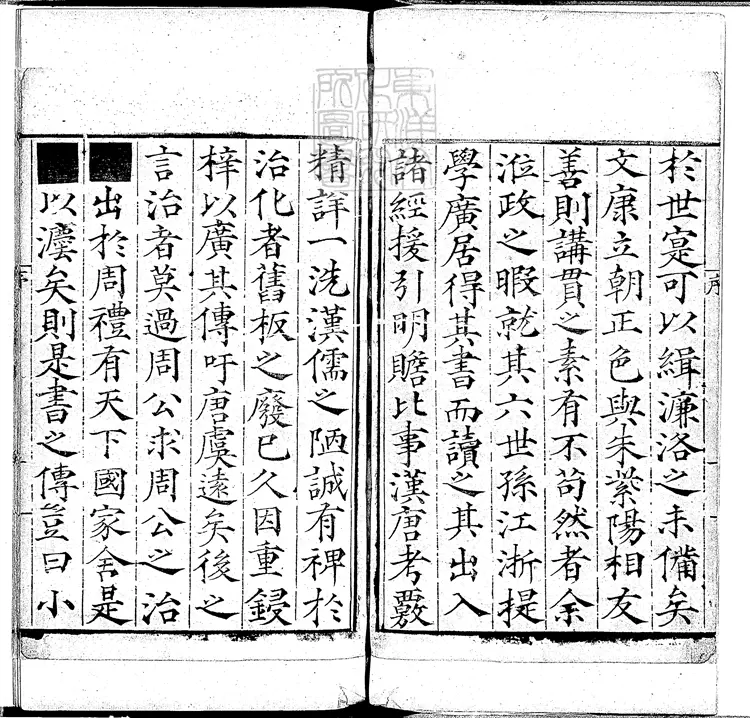 於世寔可以緝濂洛之未備矣
文康立朝正色與朱紫陽相友
善則講貫之素有不苟然者余
涖政之暇就其六世孫江浙提
學廣居得其書而讀之其出入
諸經援引明贍比事漢唐考覈
精詳一洗漢儒之陋誠有裨於
治化者舊板之廢已久因重鋟
梓以廣其傳吁唐虞遠矣後之
言治者莫過周公求周公之治
出於周禮有天下國家舍是
以瀀矣則是書之傳豈曰小
序
序